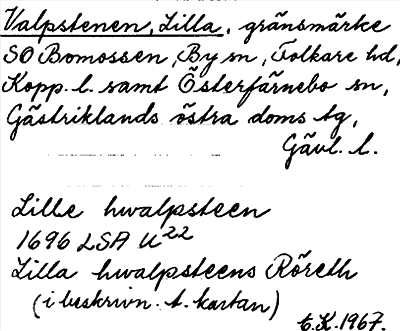 Valpstenen, Lilla, gränsmärke
SO Bomossen, By sn, Folkare hd,
Kopp. l. samt Österfärnebo sn,
Gästriklands östra doms tg,
Gävl. l.
Lille hwalpsteen
1696 LSA U22
Lilla hwalpsteens Röreth
(i beskrivn. t. kartan)
E.K. 1967.